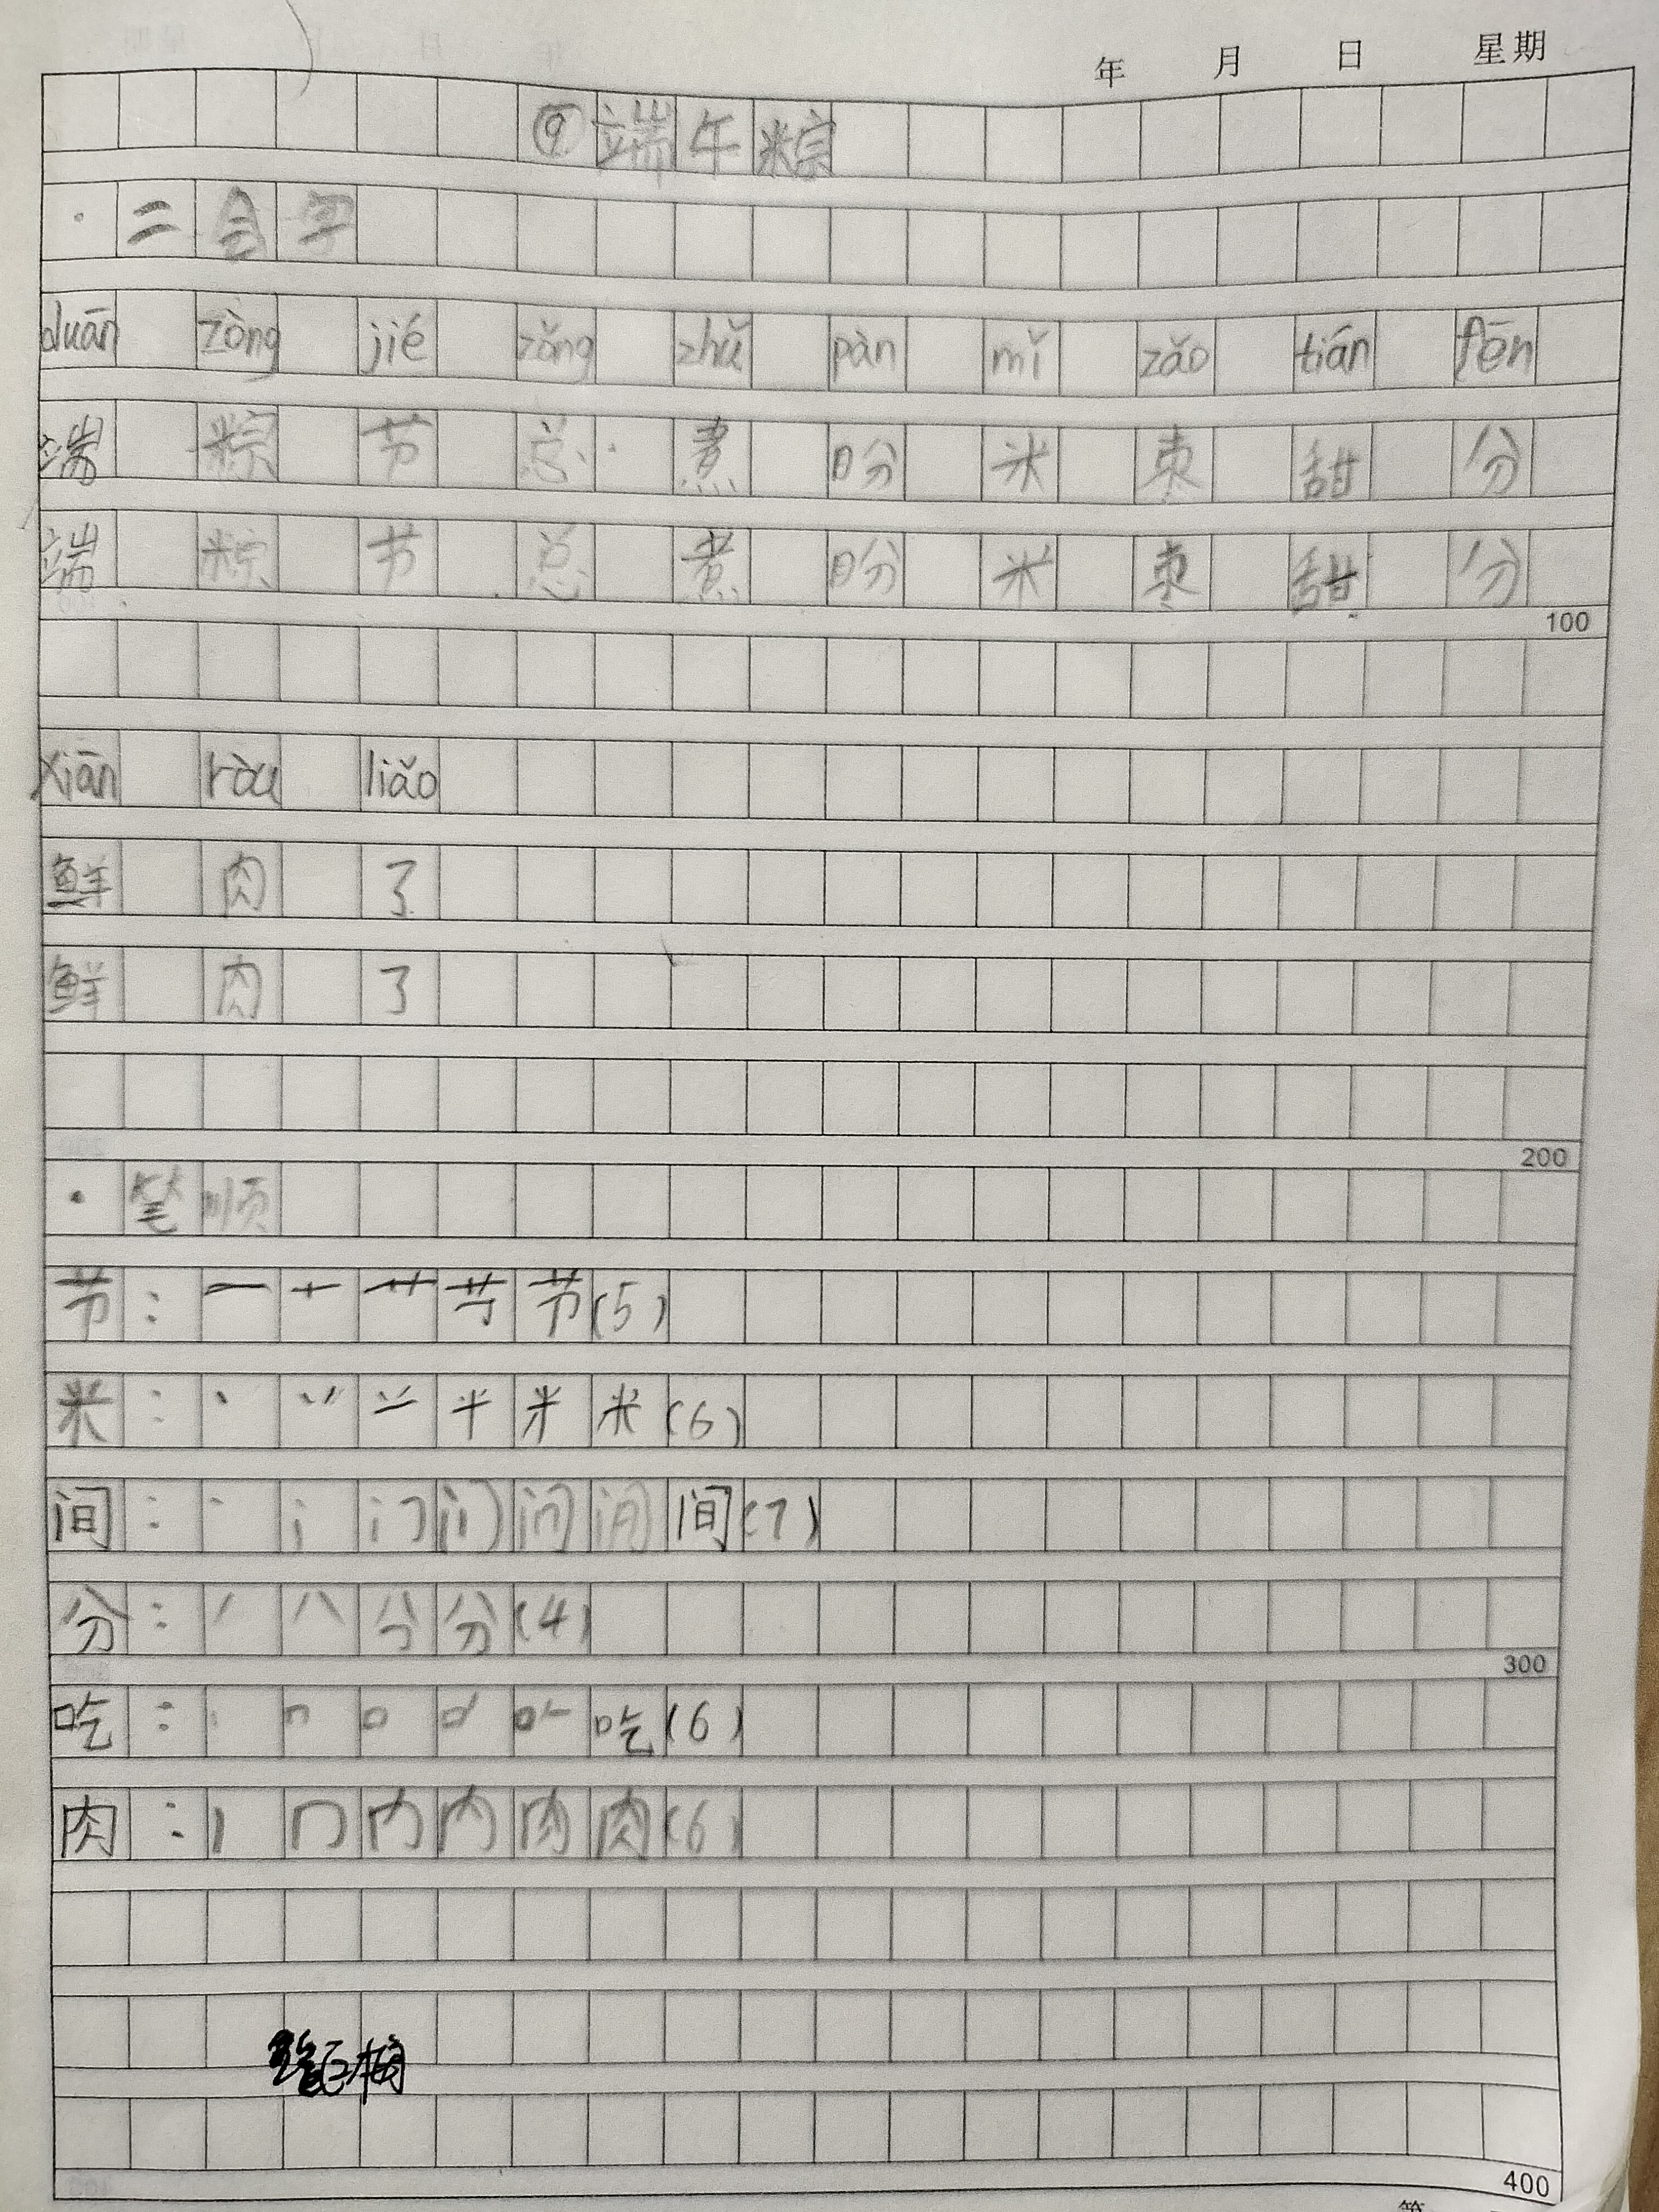 年 月 日 星期
⑨端午粽
·二会字
duān zòng jié zǒng zhǔ pàn mǐ zǎo tián fēn
端 粽 节 总 煮 盼 米 枣 甜 分
端 粽 节 总 煮 盼 米 枣 甜 分
100
xiān ròu liǎo
鲜 肉 了
鲜 肉 了
200
·笔顺
节:一 十 艹 节(5)
米:丶 丷 米(6)
间:丶 间(7)
分:丿 八 分(4)
300
吃:丨 口 吃(6)
肉:丨 冂 内 肉(6)
400
第